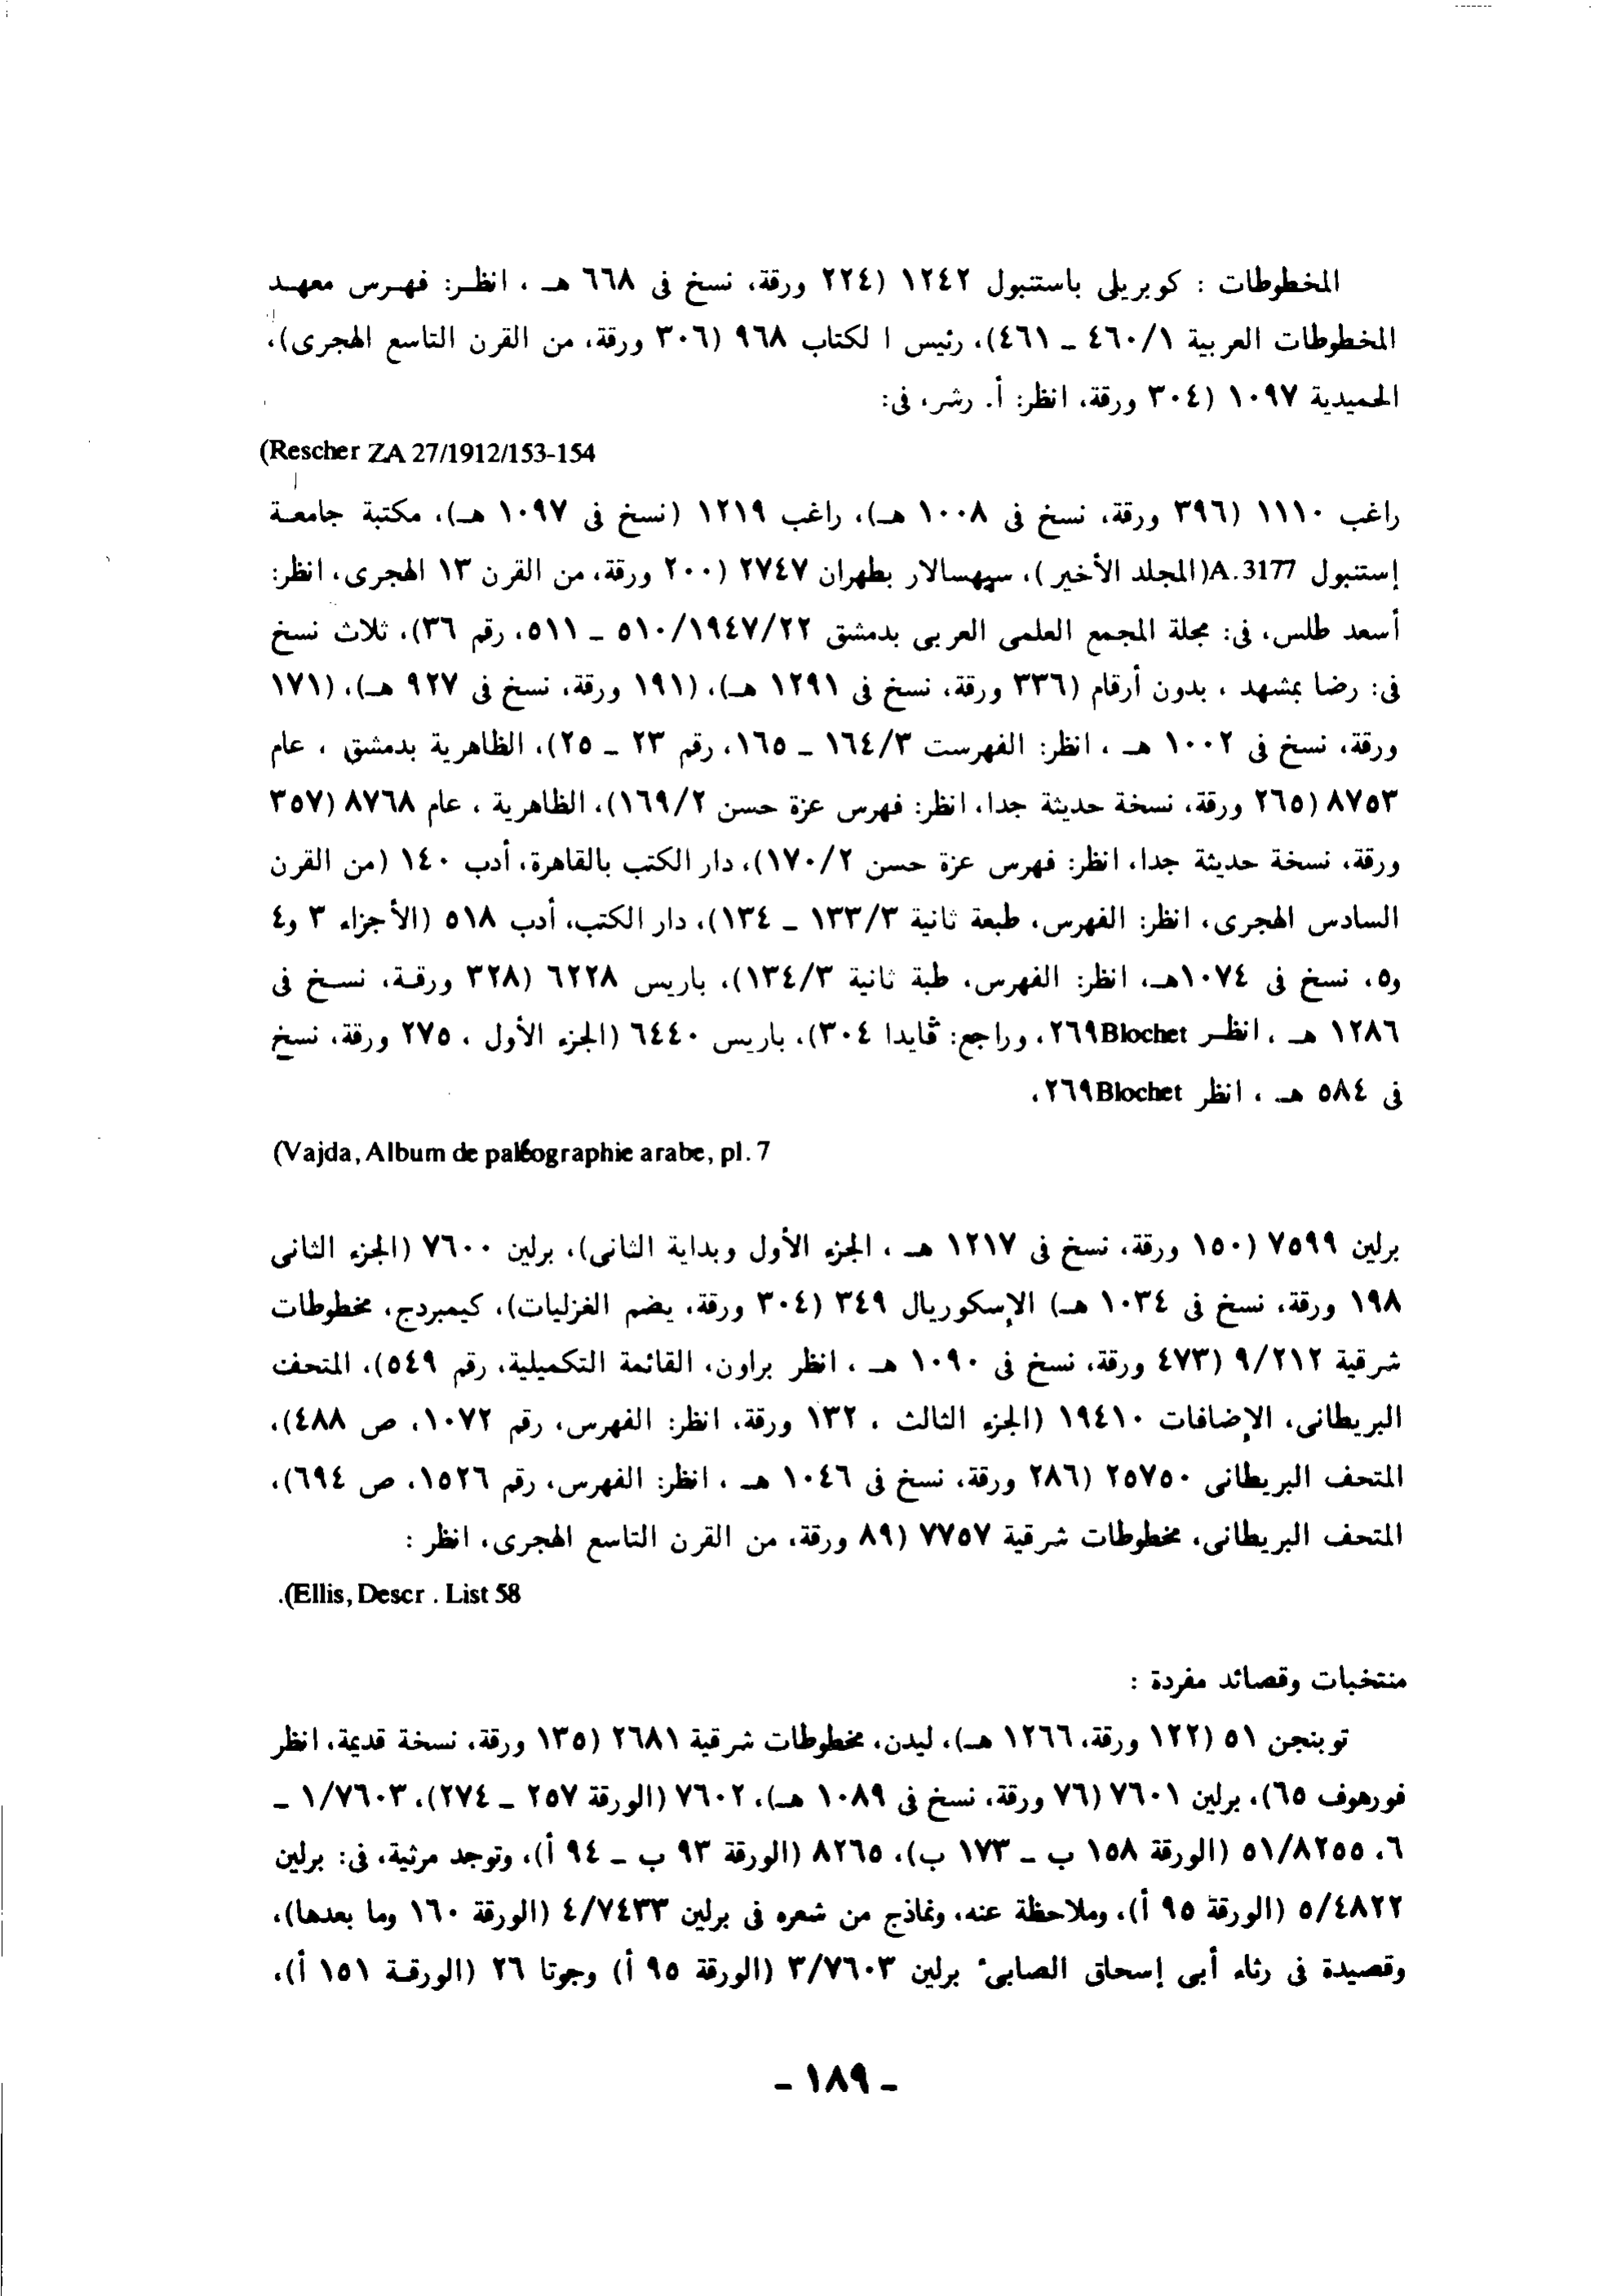 المخطوطات : كوبريلى باستنبول ١٢٤٢ (٢٢٤ ورقة، نسخ فى ٦٦٨ هـ ، انظر: فهرس معهد
المخطوطات العربية ٤٦٠/١ ـ ٤٦١)، رئيس ا لكتاب ٩٦٨ (٣٠٦ ورقة، من القرن التاسع الهجرى)،
الحميدية ١٠٩٧ (٣٠٤ ورقة، انظر: أ. رشر، فى:
(Rescher ZA 27/1912/153-154
راغب ١١١٠ (٣٩٦ ورقة، نسخ فى ١٠٠٨ هـ)، راغب ١٢١٩ (نسخ فى ١٠٩٧ هـ)، مكتبة جامعة
إستنبول A.3177(المجلد الأخير)، سپهسالار بطهران ٢٧٤٧ (٢٠٠ ورقة، من القرن ١٣ الهجرى، انظر:
أسعد طلس، فى: مجلة المجمع العلمى العربى بدمشق ٥١٠/١٩٤٧/٢٢ ـ ٥١١، رقم ٣٦)، ثلاث نسخ
فى: رضا بمشهد ، بدون أرقام (٣٣٦ ورقة، نسخ فى ١٢٩١ هـ)، (١٩١ ورقة، نسخ فى ٩٢٧ هـ)، (١٧١
ورقة، نسخ فى ١٠٠٢ هـ ، انظر: الفهرست ١٦٤/٣ ـ ١٦٥، رقم ٢٣ ـ ٢٥)، الظاهرية بدمشق ، عام
٨٧٥٣ (٢٦٥ ورقة، نسخة حديثة جدا، انظر: فهرس عزة حسن ١٦٩/٢)، الظاهرية ، عام ٨٧٦٨ (٣٥٧
ورقة، نسخة حديثة جدا، انظر: فهرس عزة حسن ١٧٠/٢)، دار الكتب بالقاهرة، أدب ١٤٠ (من القرن
السادس الهجرى، انظر: الفهرس، طبعة ثانية ١٣٣/٣ ـ ١٣٤)، دار الكتب، أدب ٥١٨ (الأجزاء ٣ و٤
و٥، نسخ فى ١٠٧٤هـ، انظر: الفهرس، طبة ثانية ١٣٤/٣)، باريس ٦٢٢٨ (٣٢٨ ورقة، نسخ فى
١٢٨٦ هـ ، انظر Blochet٢٦٩، وراجع: ڤايدا ٣٠٤)، باريس ٦٤٤٠ (الجزء الأول ، ٢٧٥ ورقة، نسخ
فى ٥٨٤ هـ ، انظر Blochet٢٦٩،
(Vajda, Album de paléographie arabe, pl. 7
برلين ٧٥٩٩ (١٥٠ ورقة، نسخ فى ١٢١٧ هـ ، الجزء الأول وبداية الثانى)، برلين ٧٦٠٠ (الجزء الثانى
١٩٨ ورقة، نسخ فى ١٠٣٤ هـ) الإسكوريال ٣٤٩ (٣٠٤ ورقة، يضم الغزليات)، كيمبردج، مخطوطات
شرقية ٩/٢١٢ (٤٧٣ ورقة، نسخ فى ١٠٩٠ هـ ، انظر براون، القائمة التكميلية، رقم ٥٤٩)، المتحف
البريطانى، الإضافات ١٩٤١٠ (الجزء الثالث ، ١٣٢ ورقة، انظر: الفهرس، رقم ١٠٧٢، ص ٤٨٨)،
المتحف البريطانى ٢٥٧٥٠ (٢٨٦ ورقة، نسخ فى ١٠٤٦ هـ ، انظر: الفهرس، رقم ١٥٢٦، ص ٦٩٤)،
المتحف البريطانى، مخطوطات شرقية ٧٧٥٧ (٨٩ ورقة، من القرن التاسع الهجرى، انظر :
.(Ellis, Descr . List 58
منتخبات وقصائد مفردة :
توبنجن ٥١ (١٢٢ ورقة، ١٢٦٦ هـ)، ليدن، مخطوطات شرقية ٢٦٨١ (١٣٥ ورقة، نسخة قديمة، انظر
فورهوف ٦٥)، برلين ٧٦٠١ (٧٦ ورقة، نسخ فى ١٠٨٩ هـ)، ٧٦٠٢ (الورقة ٢٥٧ ـ ٢٧٤)، ١/٧٦٠٣ ـ
٦، ٥١/٨٢٥٥ (الورقة ١٥٨ ب ـ ١٧٣ ب)، ٨٢٦٥ (الورقة ٩٣ ب ـ ٩٤ أ)، وتوجد مرثية، فى: برلين
٥/٤٨٢٢ (الورقة ٩٥ أ)، وملاحظة عنه، ونماذج من شعره فى برلين ٤/٧٤٣٣ (الورقة ١٦٠ وما بعدها)،
وقصيدة فى رثاء أبى إسحاق الصابىء برلين ٣/٧٦٠٣ (الورقة ٩٥ أ) وجوتا ٢٦ (الورقة ١٥١ أ)،
ـ ١٨٩ ـ